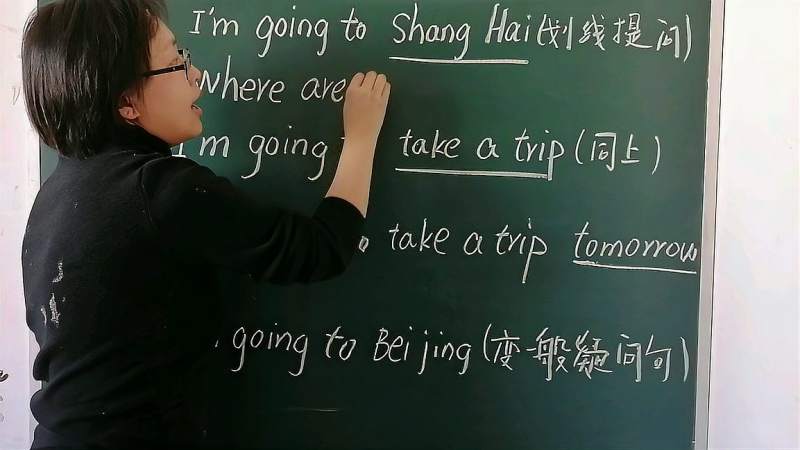 I'm going to Shang Hai (划线提问)
Where are
I'm going take a trip (同上)
take a trip tomorrow
going to Bei jing (变一般疑问句)